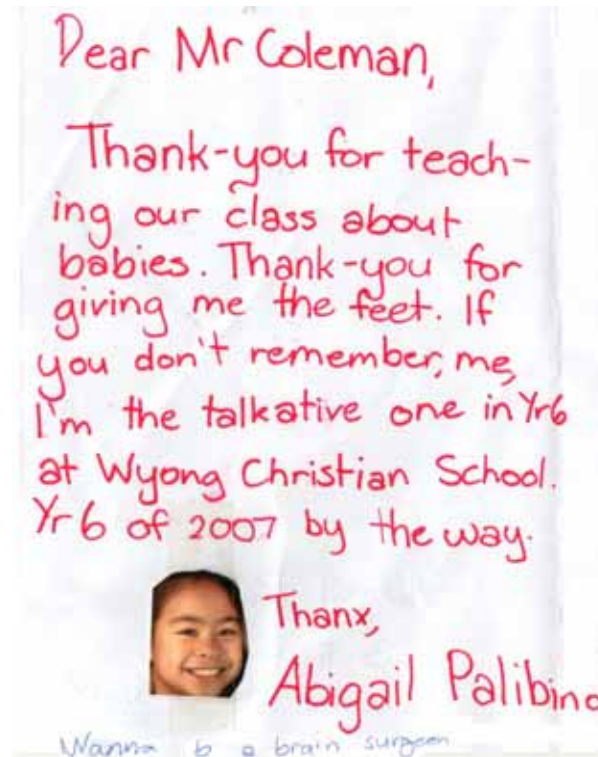 Dear Mr Coleman,
Thank-you for teach-
ing our class about
babies. Thank-you for
giving me the feet. If
you don't remember, me,
I'm the talkative one in Yr6
at Wyong Christian School.
Yr 6 of 2007 by the way.
Thanx,
Abigail Palibino
Wanna b a brain surgeon